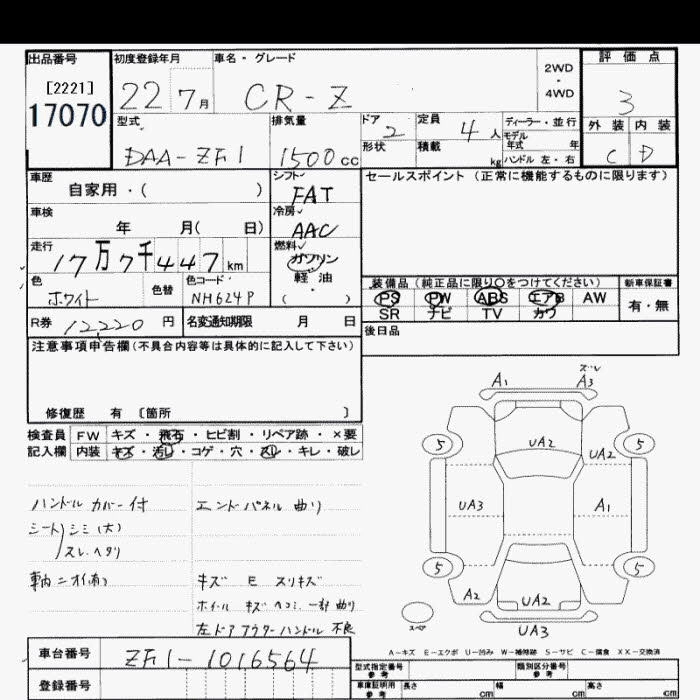 出品番号 初度登録年月 車名・グレード 2WD・4WD 評価点
[2221]
17070 22 7月 CR-Z 3
型式 排気量 ドア 2 定員 4人 ディーラー・並行 外装 内装
形状 積載 kg モデル年式 年 ハンドル 左・右
DAA-ZF1 1500cc C D
車歴 シフト セールスポイント (正常に機能するものに限ります)
自家用・( ) FAT
車検 冷房
年 月( 日) AAC
走行 燃料
17万7千447km ガソリン・軽油
色 色替 色コード ( )
ホワイト NH624P
装備品(純正品に限り○をつけてください) 新車保証書
PS PW ABS エアB AW 有・無
SR ナビ TV カワ
R券 12220円 名変通知期限 月 日
後日品
注意事項申告欄(不具合内容等は具体的に記入して下さい)
修復歴 有 〔箇所 〕
検査員 FW キズ・飛石・ヒビ割・リペア跡・×要
記入欄 内装 キズ・汚レ・コゲ・穴・スレ・キレ・破レ
ハンドル カバー付 エンドパネル 曲り
シート シミ(大)
スレ.ヘタリ
車輌ニオイ有り キズ E スリキズ
ホイール キズ ヘコミ 一部曲り
左ドアアウターハンドル 不良
ズレ
A1 A3
5 UA2 UA2 5
UA3 A1
5 5
A2 UA2
UA3
スペア
A-キズ E-エクボ U-凹み W-補修跡 S-サビ C-腐食 XX-交換済
車台番号 ZF1-1016564
型式指定番号 参考 類別区分番号 参考
登録番号 車庫証明用 参考 長さ cm 幅 cm 高さ cm